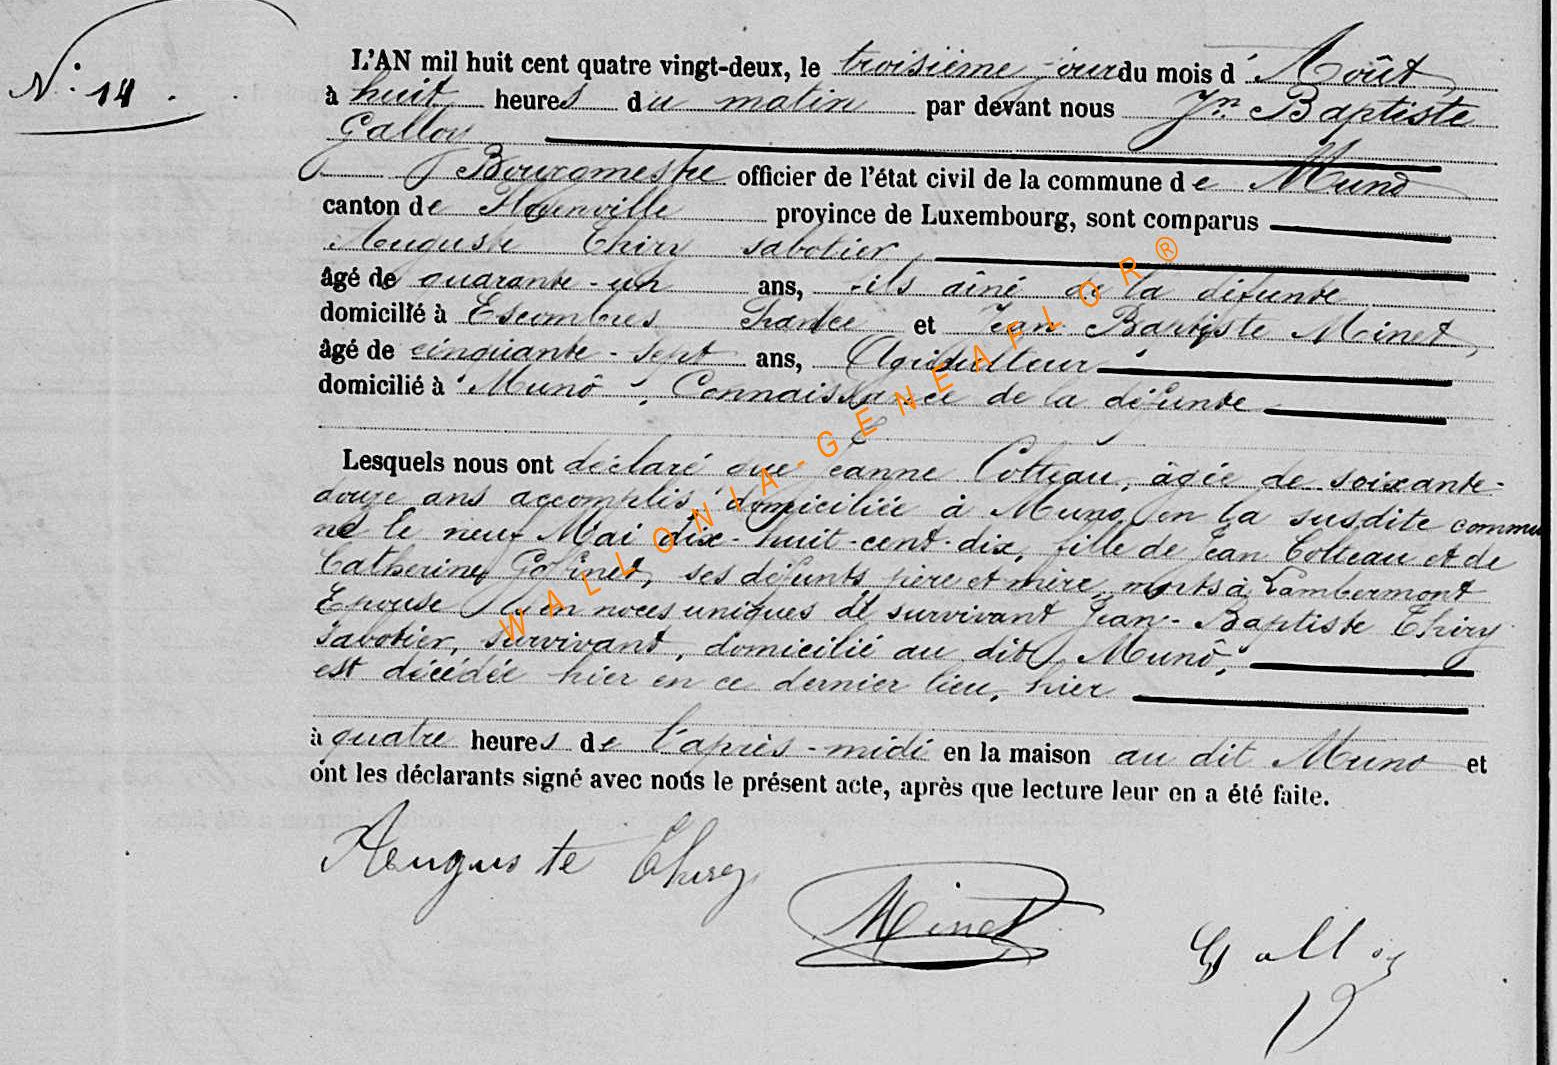 N. 14.
L'AN mil huit cent quatre vingt-deux, le troisième jour du mois d'Août
à huit heures du matin par devant nous Jn Baptiste
Galloy
Bourgmestre officier de l'état civil de la commune de Muno
canton de Florenville province de Luxembourg, sont comparus
Auguste Thiry sabotier
âgé de quarante-un ans, fils aîné de la défunte
domicilié à Escombres France et Jean Baptiste Minet
âgé de cinquante-sept ans, Agriculteur
domicilié à Munô, Connaissance de la défunte
Lesquels nous ont déclaré que Jeanne Colteau, âgée de soixante-
douze ans accomplis, domiciliée à Muno, en la susdite commune
né le neuf Mai dix-huit-cent-dix, fille de Jean Colteau et de
Catherine, ses défunts père et mère, morts à Lambermont
Epouse en noces uniques survivant Jean-Baptiste Thiry
sabotier, survivant, domicilié au dit Munô,
est décédée hier en ce dernier lieu, hier
à quatre heures de l'après-midi en la maison au dit Muno et
ont les déclarants signé avec nous le présent acte, après que lecture leur en a été faite.
Auguste Thiry
Minet
Galloy
WALLONIA-GENEAFLOR®